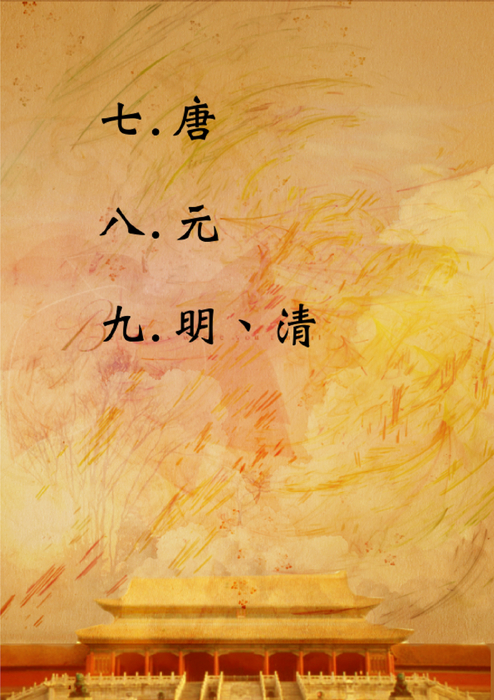 七.唐
八.元
九.明、清